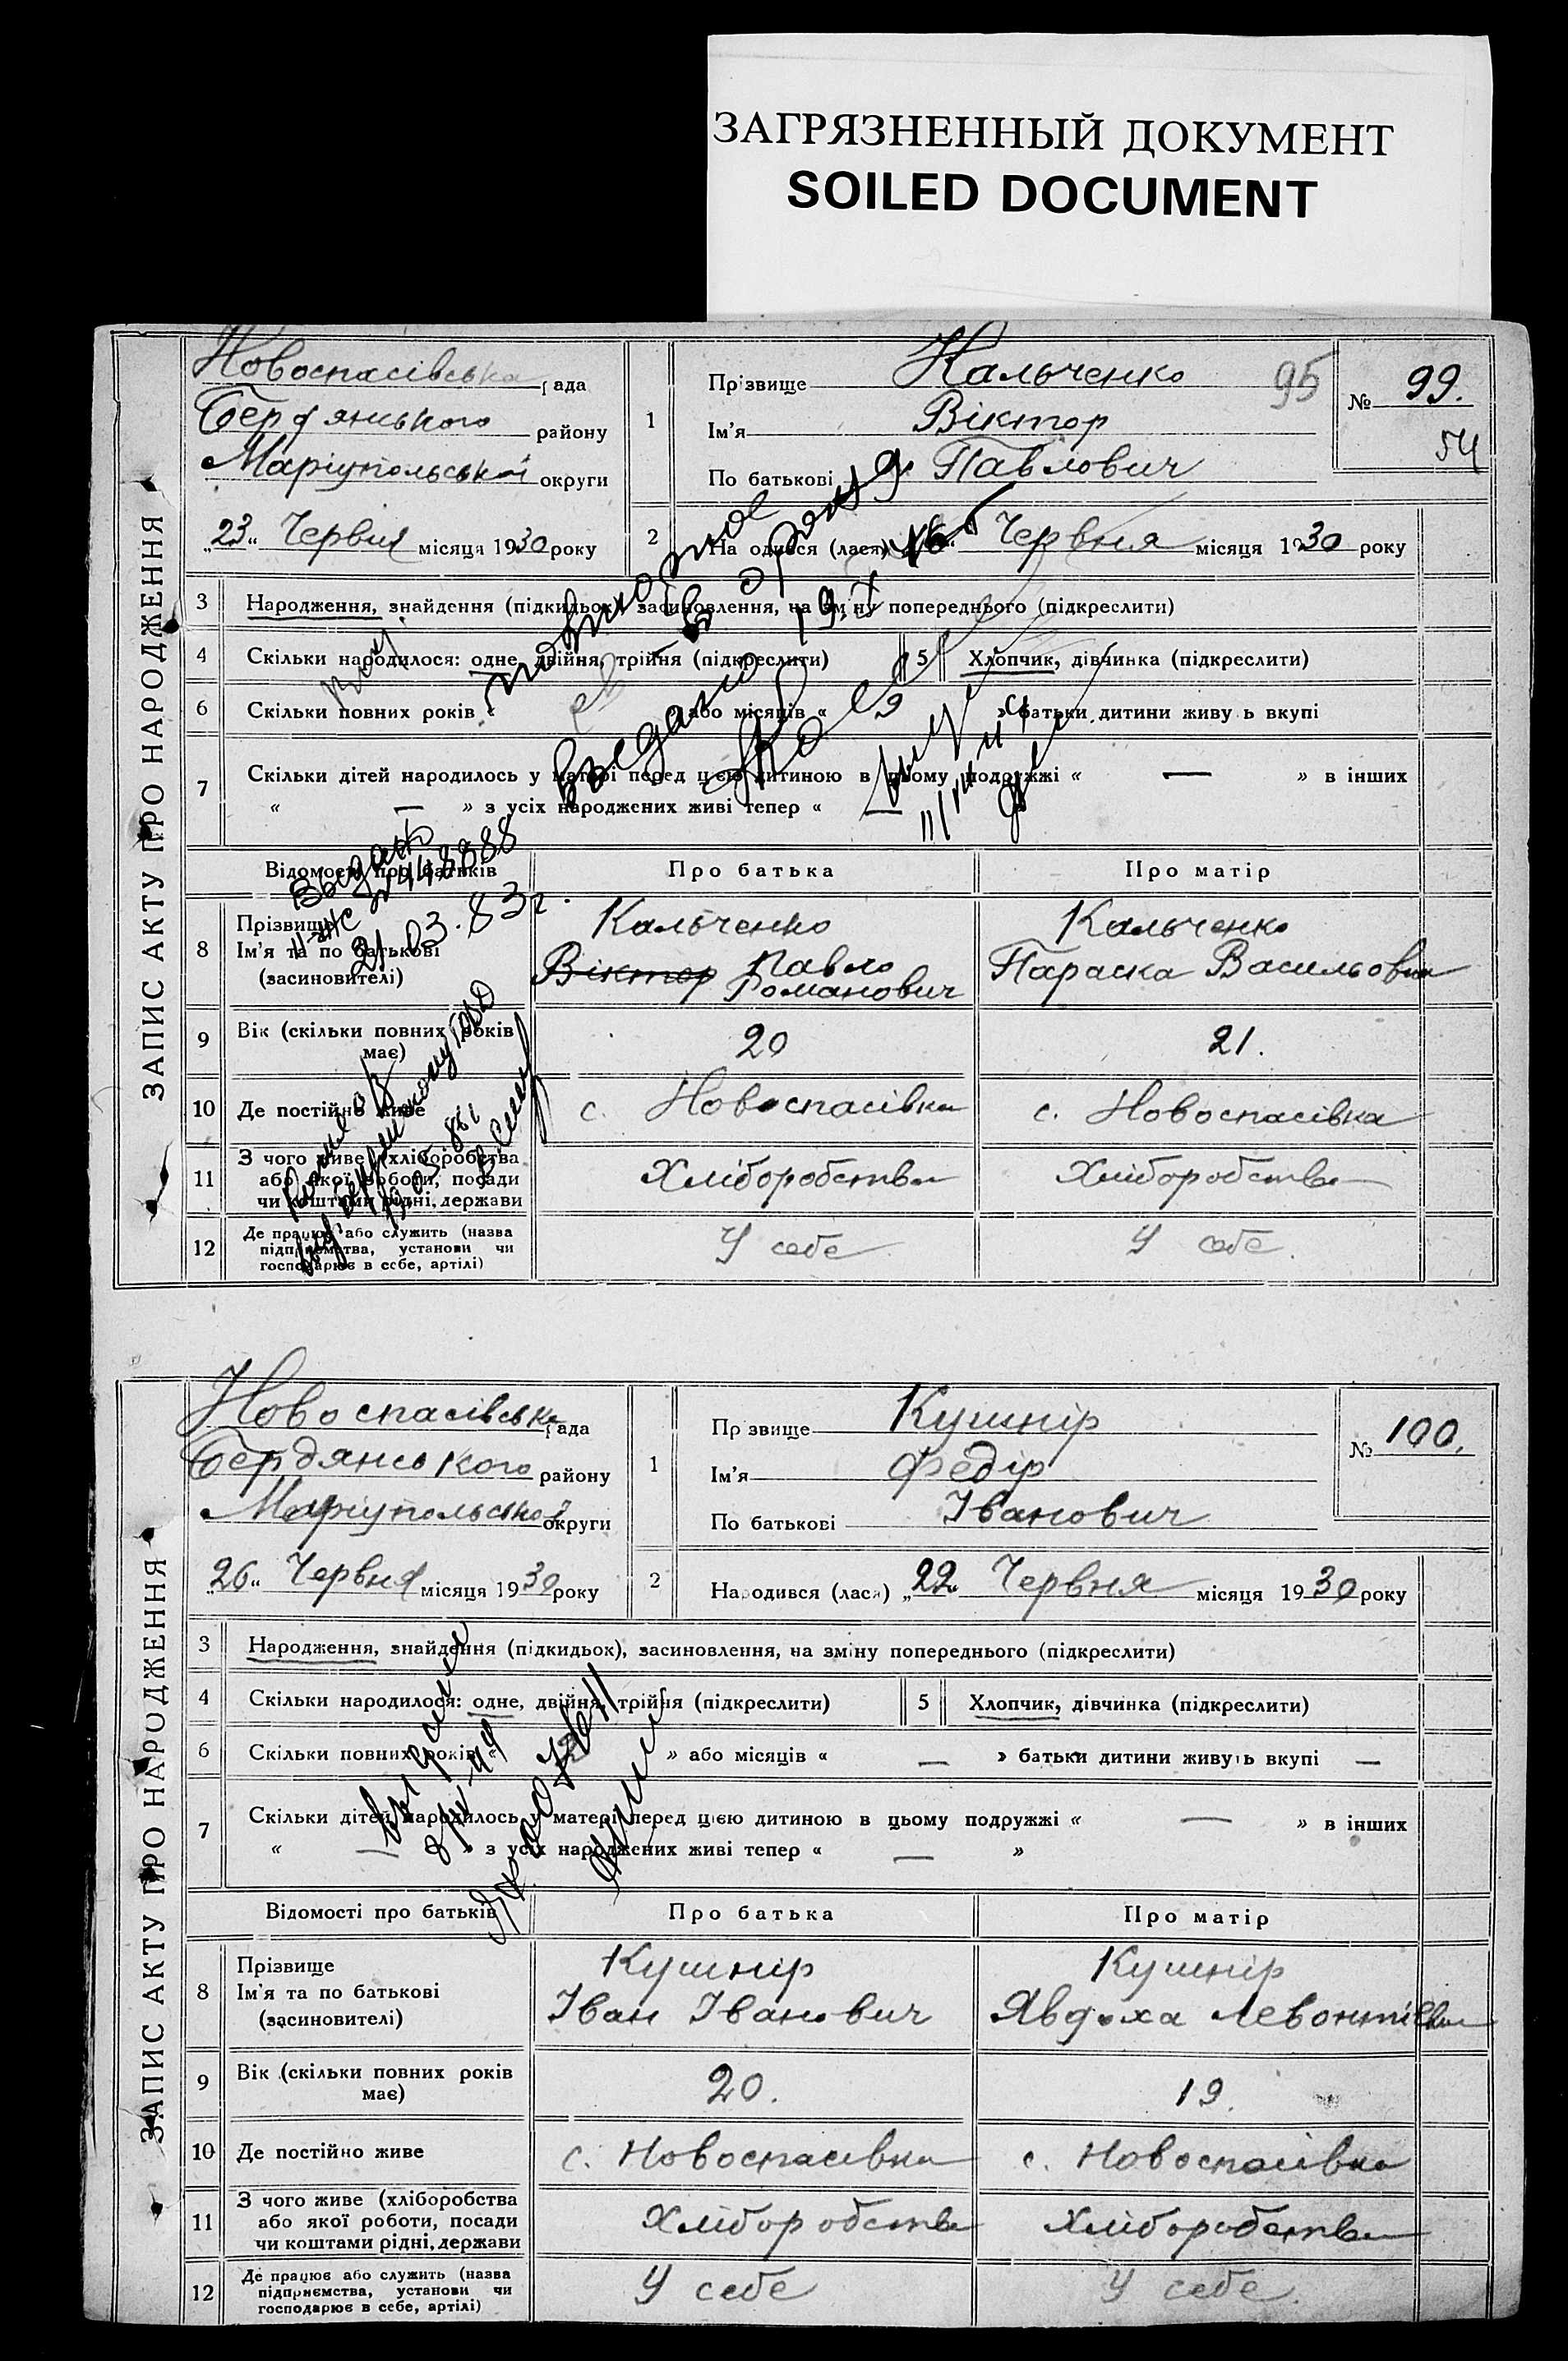 ЗАГРЯЗНЕННЫЙ ДОКУМЕНТ
SOILED DOCUMENT
ЗАПИС АКТУ ПРО НАРОДЖЕННЯ
Новоспасівська рада
Бердянського району
Маріупольської округи
„23“ Червня місяця 1930 року
1
Прізвище Кальченко
95
Ім'я Віктор
По батькові Павлович
№ 99.
54
2 Народився (лася) Червня місяця 1930 року
3 Народження, знайдення (підкидьок), засиновлення, на зміну попереднього (підкреслити)
4 Скільки народилося: одне, двійня, трійня (підкреслити) 5 Хлопчик, дівчинка (підкреслити)
6 Скільки повних років « або місяців « » батьки дитини живуть вкупі
7 Скільки дітей народилось у матері перед цією дитиною в цьому подружжі « — » в інших
« — » з усіх народжених живі тепер « —
повторное
Выдано 19.
Выдано
448888
21.03.83г.
Відомості про батьків Про батька Про матір
8 Прізвище
Ім'я та по батькові
(засиновителі)
Кальченко
Віктор Павло
Романович
Кальченко
Параска Васильовна
9 Вік (скільки повних років
має)
20 21.
10 Де постійно живе с. Новоспасівка с. Новоспасівка
11 З чого живе (хліборобства
або якої роботи, посади
чи коштами рідні, держави
Хліборобства Хліборобства
12 Де працює або служить (назва
підприємства, установи чи
господарює в себе, артілі)
У себе У себе.
ЗАПИС АКТУ ПРО НАРОДЖЕННЯ
Новоспасівська рада
Бердянського району
Маріупольської округи
„26“ Червня місяця 1930 року
1
Прізвище Кушнір
Ім'я Федір
По батькові Іванович
№ 100.
2 Народився (лася) „22“ Червня місяця 1930 року
3 Народження, знайдення (підкидьок), засиновлення, на зміну попереднього (підкреслити)
4 Скільки народилося: одне, двійня, трійня (підкреслити) 5 Хлопчик, дівчинка (підкреслити)
6 Скільки повних років « » або місяців « — » батьки дитини живуть вкупі —
7 Скільки дітей народилось у матері перед цією дитиною в цьому подружжі « — » в інших
« — » з усіх народжених живі тепер « — »
Відомості про батьків Про батька Про матір
8 Прізвище
Ім'я та по батькові
(засиновителі)
Кушнір
Іван Іванович
Кушнір
Явдоха Левонтіївна
9 Вік (скільки повних років
має)
20. 19.
10 Де постійно живе с. Новоспасівка с. Новоспасівка
11 З чого живе (хліборобства
або якої роботи, посади
чи коштами рідні, держави
Хліборобства Хліборобства
12 Де працює або служить (назва
підприємства, установи чи
господарює в себе, артілі)
У себе У себе.